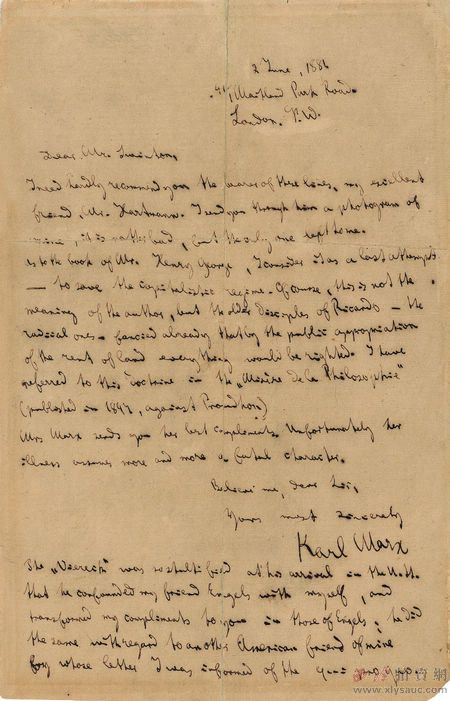 2 June, 1881
41, Maitland Park Road.
London. N.W.
Dear Mr. Swinton,
I need hardly recommend you the bearer of these lines, my excellent
friend, Mr. Hartmann. I send you through him a photogram of
mine; it is rather bad, but the only one left to me.
As to the book of Mr. Henry George, I consider it as a last attempt
— to save the capitalistic regime. Of course, this is not the
meaning of the author, but the older disciples of Ricardo — the
radical ones — fancied already that by the public appropriation
of the rent of land everything would be righted. I have
referred to this doctrine in the "Misère de la Philosophie"
(published in 1847, against Proudhon)
Mrs Marx sends you her best compliments. Unfortunately her
illness assumes more and more a fatal character.
Believe me, dear Sir,
Yours most sincerely
Karl Marx
The "Viereck" was so stultified at his arrival in the U. St.
that he confounded my friend Engels with myself, and
transformed my compliments to you in those of Engels; he did
the same with regard to another American friend of mine
by whose letter I was informed of the
www.xlysauc.com